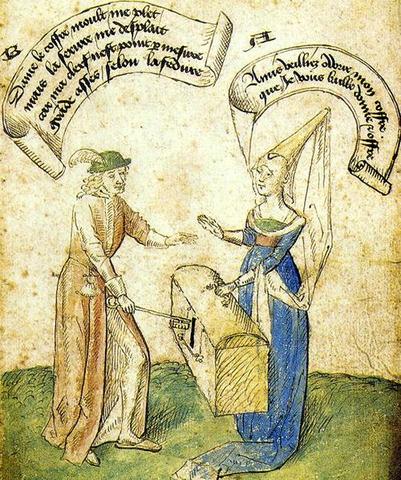 B
Dame le coffre moult me plet
mais la serure me desplait
car ma clef nest point p mesure
asses selon la serure
A
Amis veilliez mon coffre
que Je vous baille donne offre